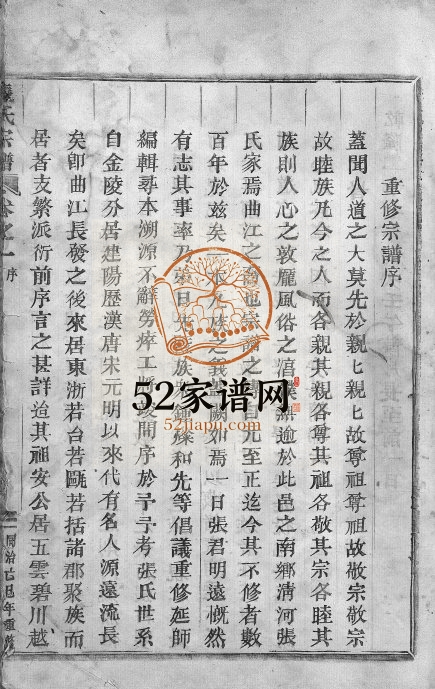 重修宗譜序
蓋聞人道之大莫先於親匕親匕故尊祖尊祖故敬宗敬宗
故睦族乃今之人而各親其親各尊其祖各敬其宗各睦其
族則人心之敦龎風俗之湻樸無逾於此邑之南鄉淸河張
氏家焉曲江之裔也宗譜之元至正迄今其不修者數
百年於兹矣族之義闕如焉一日張君明遠慨然
有志其事率乃弟日族鍾燦和先等倡議重修延師
編輯尋本溯源不辭勞瘁工竣問序於予予考張氏世系
自金陵分居建陽歷漢唐宋元明以來代有名人源遠流長
矣卽曲江長發之後來居東浙若台若甌若括諸郡聚族而
居者支繁派衍前序言之甚詳迨其祖安公居五雲碧川越
氏宗譜 卷之一 序
同治己巳年重修
52家谱网
52jiapu.com